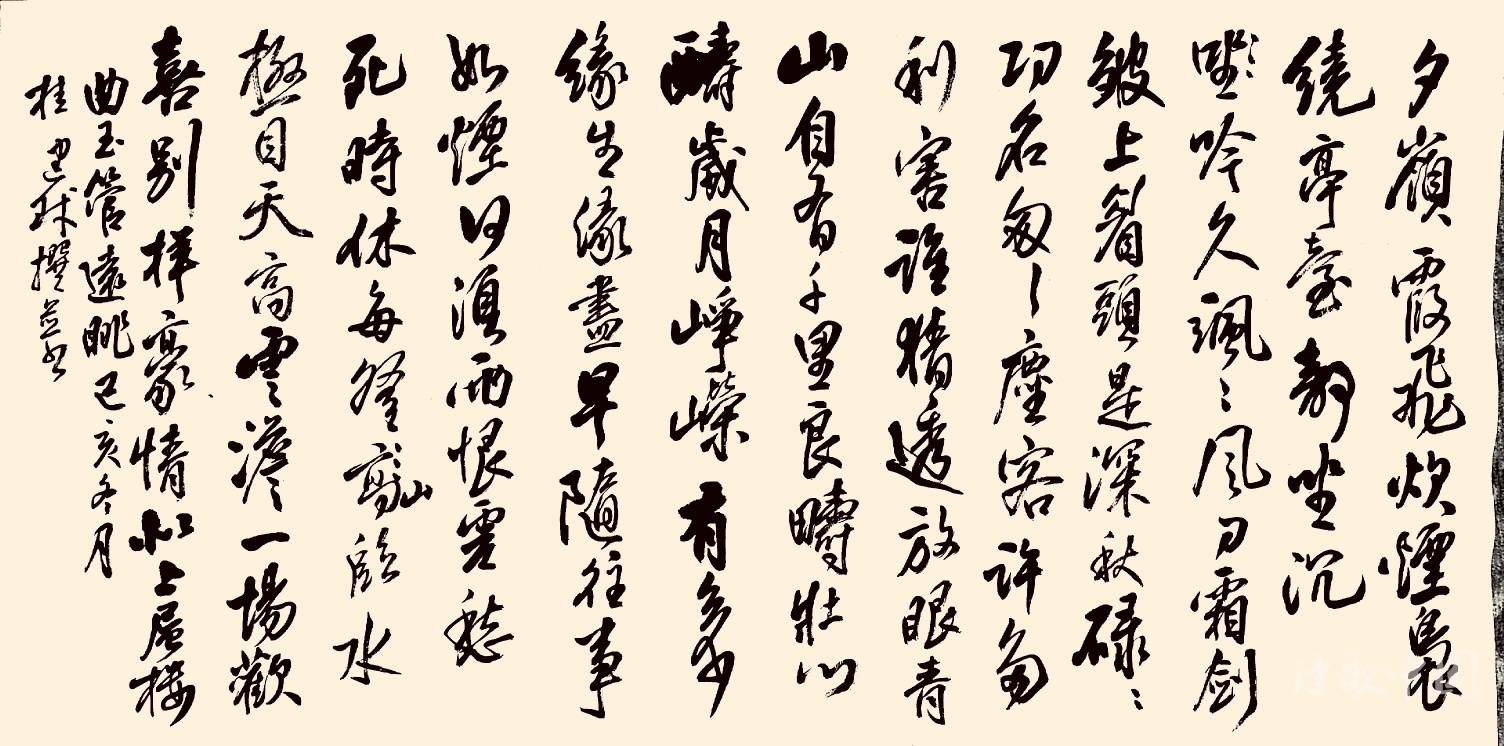 夕嶺霞飛炊煙裊
繞亭臺靜坐沉
吟久颯〻風刀霜劍
皺上眉頭是深秋碌〻
功名匆〻塵客許多
利害誰猜透放眼青
山自有千里良疇壯心
醻歲月崢嶸有多少
緣生緣盡早隨往事
如煙何須雨恨雲愁
死時休每登山臨水
極目天高雲淡一場歡
喜別樣豪情似上層樓
曲玉管遠眺己亥冬月
桂建球撰並書